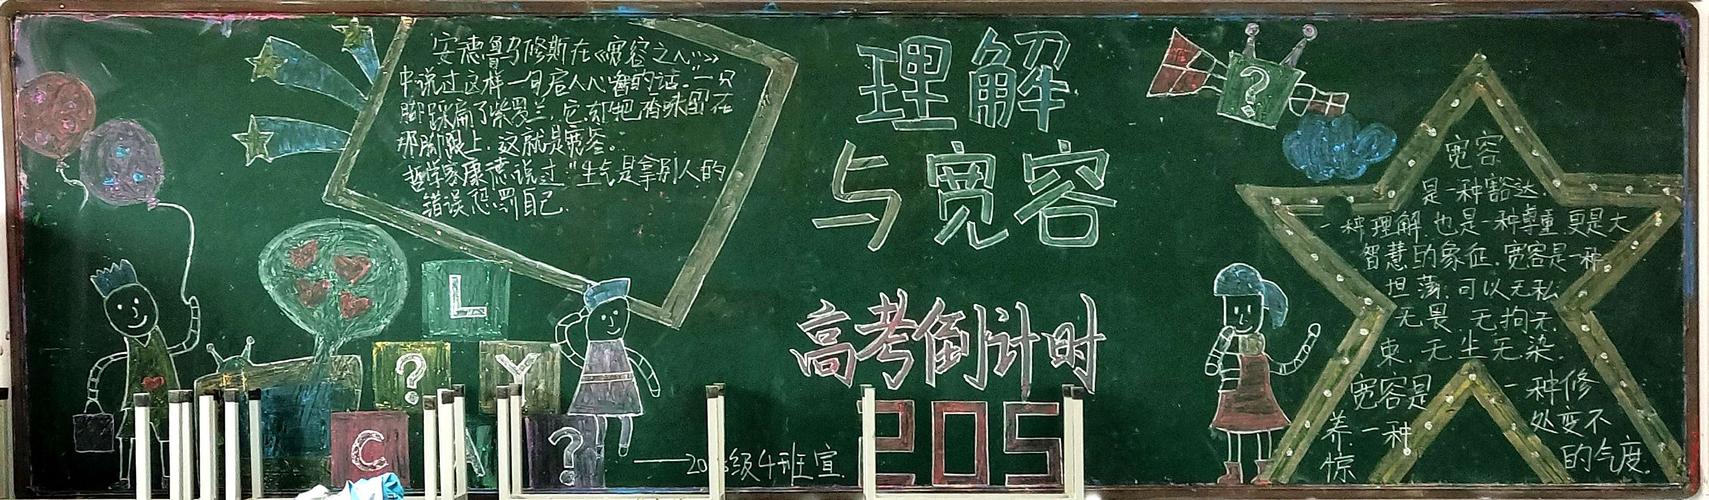 安德鲁马修斯在《宽容之心》
中说过这样一句启人心智的话:一只
脚踩扁了紫罗兰,它却把香味留在
那脚跟上,这就是宽容。
哲学家康德说过“生气是拿别人的
错误惩罚自己
L
?
Y
C
A
?
理解
与宽容
高考倒计时
205
级4班宣
?
宽容
是一种豁达
一种理解,也是一种尊重,更是大
智慧的象征,宽容是一种
坦荡,可以无私
无畏,无拘无
束,无尘无染.
宽容是一种修
养,一种处变不
惊的气度.